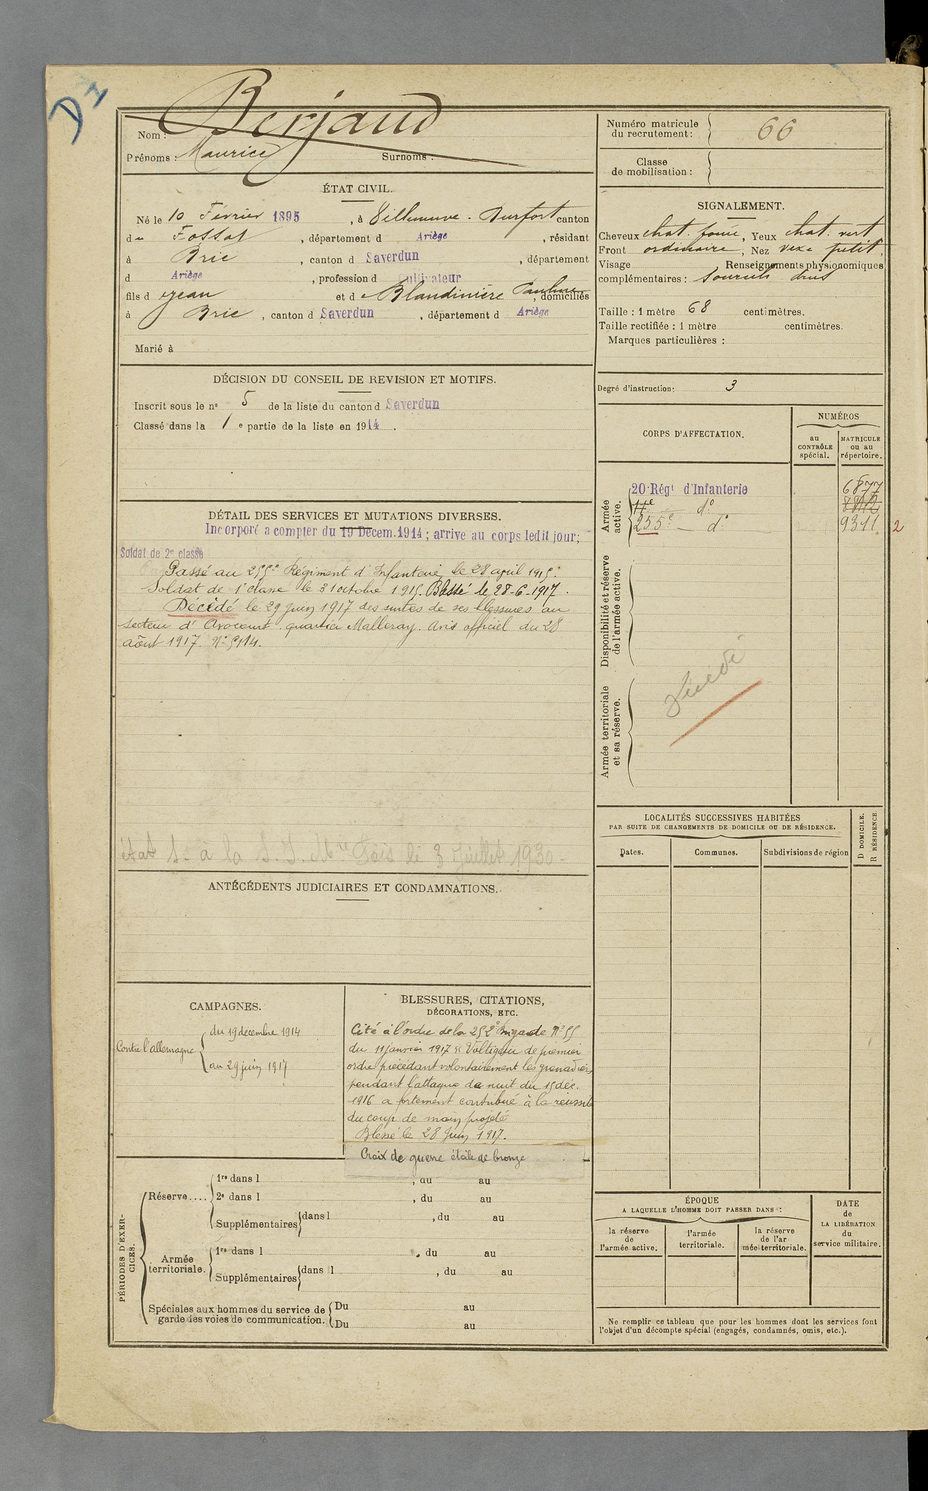 D 1
Nom : Berjaud
Prénoms : Maurice Surnoms :
ÉTAT CIVIL.
Né le 10 Février 1895, à Villeneuve-Durfort canton
du Fossat, département d Ariège, résidant
à Brie, canton d Saverdun, département
d Ariège, profession d cultivateur
fils d Jean et d Blandinière Pauline, domiciliés
à Brie, canton d Saverdun, département d Ariège
Marié à
DÉCISION DU CONSEIL DE REVISION ET MOTIFS.
Inscrit sous le nº 5 de la liste du canton d Saverdun
Classé dans la 1 e partie de la liste en 1914.
DÉTAIL DES SERVICES ET MUTATIONS DIVERSES.
Incorporé a compter du 19 Decem. 1914 ; arrive au corps ledit jour;
Soldat de 2e classe
Passé au 255e Régiment d'Infanterie le 28 april 1915.
Soldat de 1e classe le 31 octobre 1915. Blessé le 28-6-1917.
Décédé le 29 juin 1917 des suites de ses blessures au
secteur d'Avocourt quartier Malleray. Avis officiel du 28
août 1917. Nº 5114.
état s. à la s. I. Mre Fois le 3 Juillet 1930
ANTÉCÉDENTS JUDICIAIRES ET CONDAMNATIONS.
CAMPAGNES.
Contre l'allemagne
du 19 decembre 1914
au 29 juin 1917
BLESSURES, CITATIONS,
DÉCORATIONS, ETC.
Cité à l'ordre de la 252e Brigade Nº 55
du 11 janvier 1917 "Voltigeur de premier
ordre précédant volontairement les grenadiers
pendant l'attaque de nuit du 15 déc.
1916 a fortement contribué à la réussite
du coup de main projeté
Blessé le 28 Juin 1917.
Croix de guerre étoile de bronze
PÉRIODES D'EXERCICES.
Réserve....
1re dans l , du au
2e dans l , du au
Supplémentaires dans l , du au
Armée territoriale.
1re dans l , du au
Supplémentaires dans l , du au
Spéciales aux hommes du service de Du au
garde des voies de communication. Du au
Numéro matricule
du recrutement : 66
Classe
de mobilisation :
SIGNALEMENT.
Cheveux chat. foncé, Yeux chat. vert
Front ordinaire, Nez vexe petit
Visage Renseignements physionomiques
complémentaires : sourcils drus
Taille : 1 mètre 68 centimètres.
Taille rectifiée : 1 mètre centimètres.
Marques particulières :
Degré d'instruction : 3
CORPS D'AFFECTATION.
NUMÉROS
au CONTRÔLE spécial.
MATRICULE ou au répertoire.
Armée active.
20 Régt d'Infanterie 6877
dº
255e dº 9311 2
Disponibilité et réserve de l'armée active.
Armée territoriale et sa réserve.
Décédé
LOCALITÉS SUCCESSIVES HABITÉES
PAR SUITE DE CHANGEMENTS DE DOMICILE OU DE RÉSIDENCE.
D DOMICILE.
R RÉSIDENCE
Dates. Communes. Subdivisions de région
ÉPOQUE
A LAQUELLE L'HOMME DOIT PASSER DANS :
la réserve de l'armée active.
l'armée territoriale.
la réserve de l'armée territoriale.
DATE
de
LA LIBÉRATION
du
service militaire.
Ne remplir ce tableau que pour les hommes dont les services font
l'objet d'un décompte spécial (engagés, condamnés, omis, etc.).